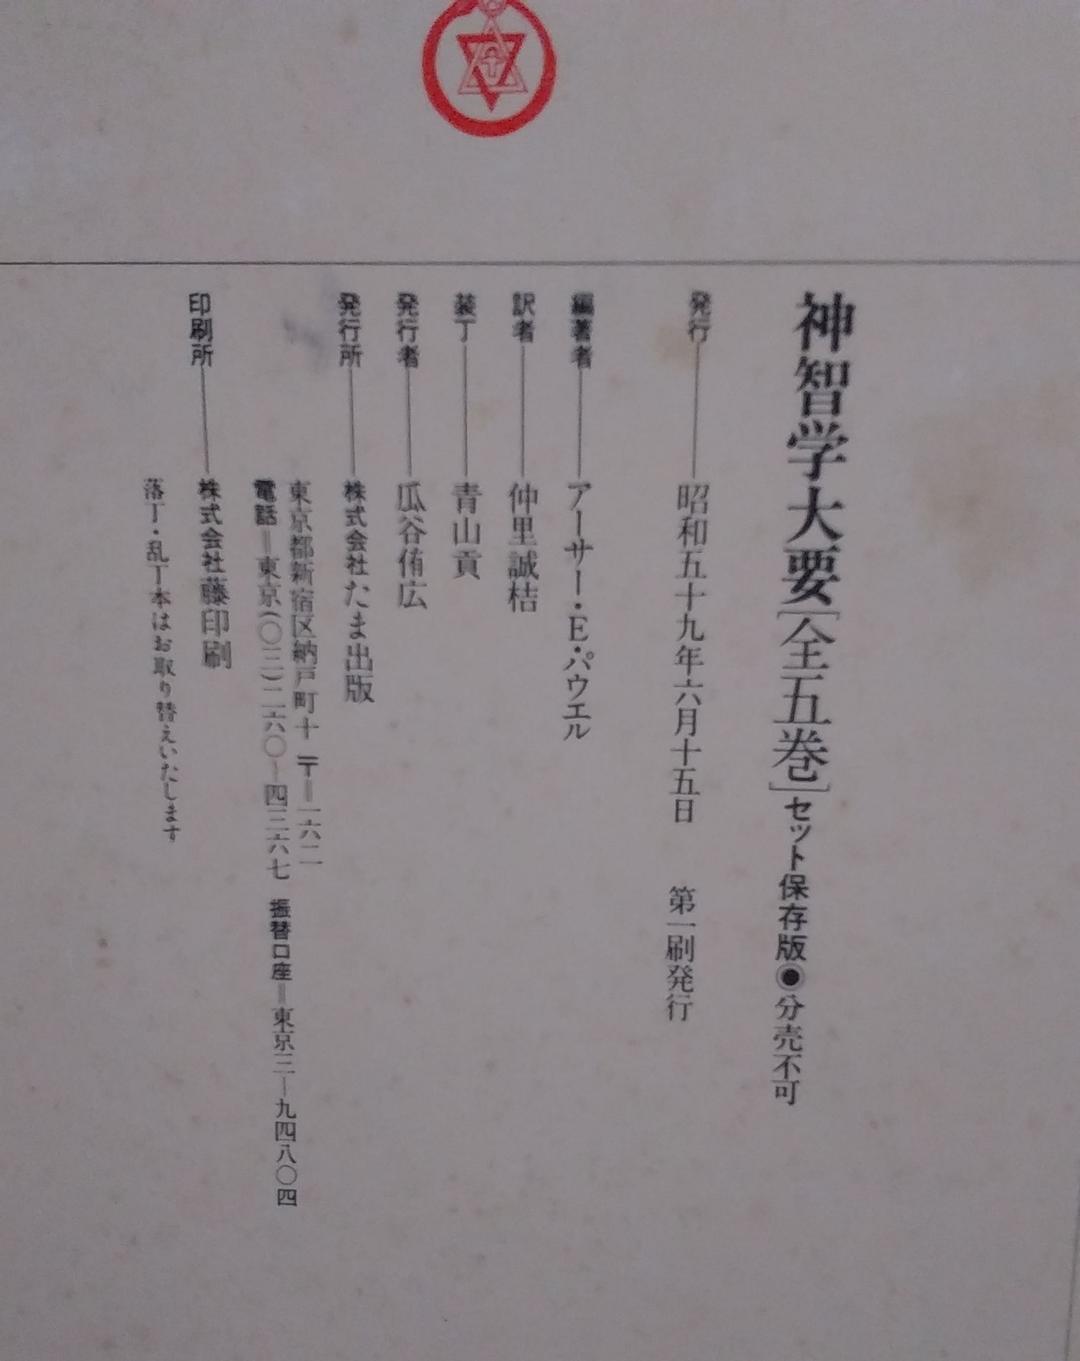 神智学大要[全五巻]セット保存版◉分売不可
発行――昭和五十九年六月十五日 第一刷発行
編著者――アーサー・E・パウエル
訳者――仲里誠桔
装丁――青山貢
発行者――瓜谷侑広
発行所――株式会社たま出版
東京都新宿区納戸町十 〒＝一六二
電話＝東京(〇三)二六〇－四三六七 振替口座＝東京三－九四八〇四
印刷所――株式会社藤印刷
落丁・乱丁本はお取り替えいたします